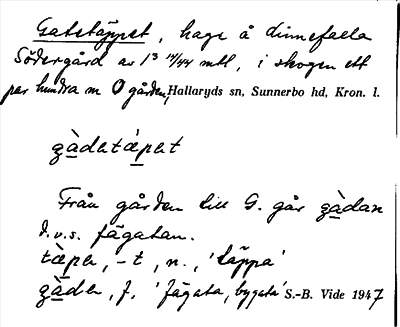 Gatetäppet, hage å dinnefalla
Södergård av 1³ 12/44 mtl, i skogen ett
par hundra m O gården, Hallaryds sn, Sunnerbo hd, Kron. l.
gàdatɛ̀pat
Från gården till G. går gàdan
d.v.s. fägatan.
tɛ̀pa, -t, n., 'täppa'
gàda, f. 'fägata, bygata' S.-B. Vide 1947